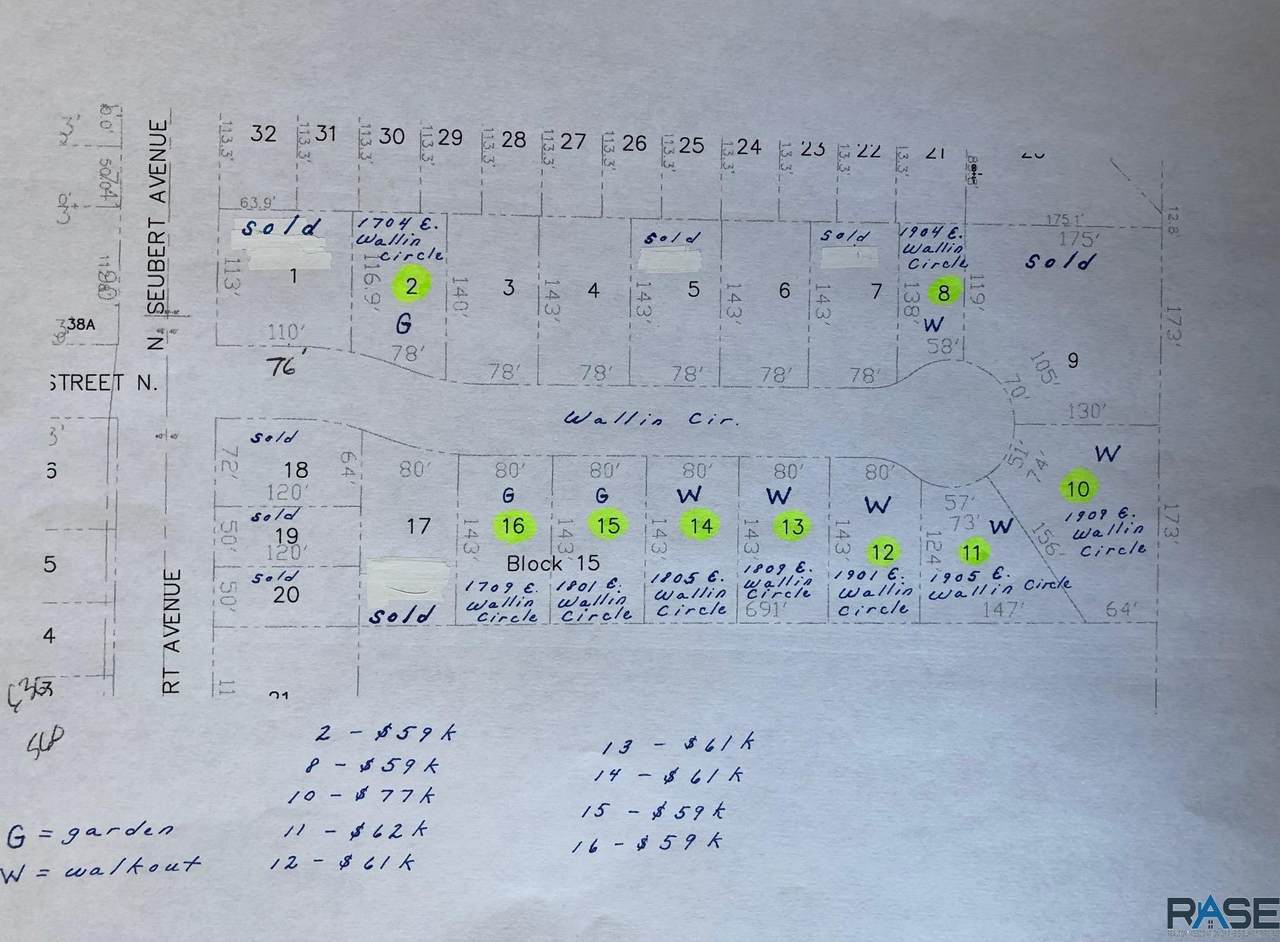 32 31 30 29 28 27 26 25 24 23 22 21
113.3' 113.3' 113.3' 113.3' 113.3' 113.3' 113.3' 113.3' 113.3' 113.3' 113.3' 13.3'
N. SEUBERT AVENUE
63.9'
175.1'
12.8'
sold
1
113'
110'
76'
1704 E.
Wallin
Circle
2
116.9'
G
78'
140'
3
78'
143'
4
78'
sold
143'
5
78'
143'
6
78'
sold
143'
7
78'
1904 E.
Wallin
Circle
138'
8
W
58'
119'
175'
sold
9
173'
105'
70'
130'
38A
STREET N.
Wallin Cir.
6
5
4
3
RT AVENUE
sold
72'
18
64'
120'
sold
50'
19
120'
sold
50'
20
11
21
80'
17
sold
80'
G
143'
16
1709 E.
Wallin
Circle
80'
G
143'
15
Block 15
1801 E.
Wallin
Circle
80'
W
143'
14
1805 E.
Wallin
Circle
80'
W
143'
13
1809 E.
Wallin
Circle
691'
80'
W
143'
12
1901 E.
Wallin
Circle
57'
73'
W
124'
11
1905 E.
Wallin Circle
147'
51'
74'
W
10
1909 E.
Wallin
Circle
156'
173'
64'
2 - $59k
8 - $59k
10 - $77k
11 - $62k
12 - $61k
13 - $61k
14 - $61k
15 - $59k
16 - $59k
G = garden
W = walkout
RASE